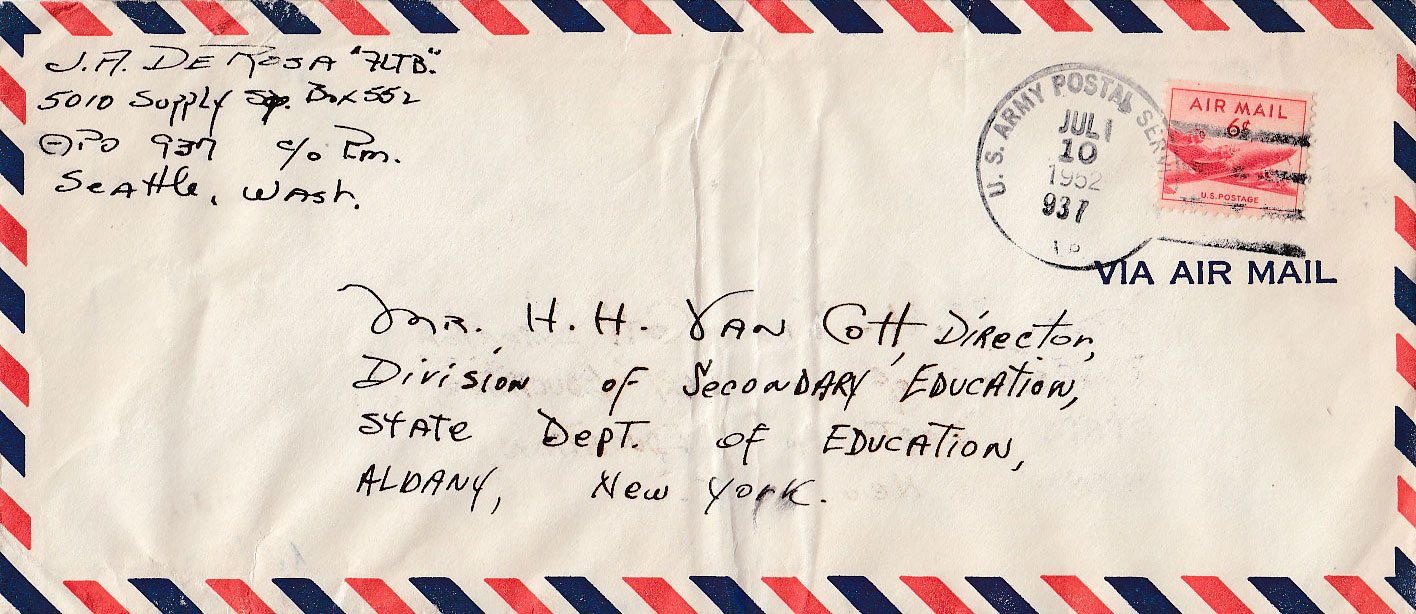 J.A. DE ROSA "7LTB".
5010 Supply Sq. Box 552
APO 937 c/o Pm.
Seattle, Wash.
U.S. ARMY POSTAL SERVI
JUL 1
10
1952
937
AIR MAIL
6¢
U.S. POSTAGE
VIA AIR MAIL
MR. H. H. VAN Cott, Director,
Division of Secondary Education,
State Dept. of Education,
ALBANY, New York.